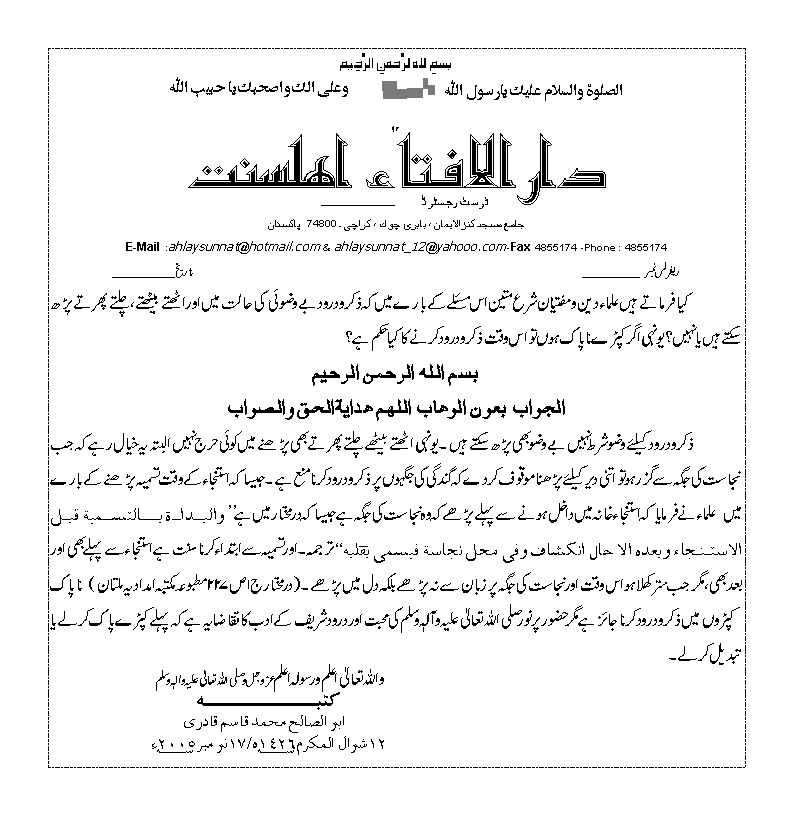 بسم اللہ الرحمن الرحیم
الصلوة والسلام علیک یارسول اللہ وعلی الک واصحبک یا حبیب اللہ
۹۲
دار الافتاء اهلسنت
ٹرسٹ رجسٹرڈ
جامع مسجد کنزالایمان ، بابری چوک ، کراچی ۔ 74800 پاکستان
E-Mail :ahlaysunnat@hotmail.com & ahlaysunnat_12@yahooo.com-Fax 4855174 -Phone : 4855174
ریفرنس نمبر ________ تاریخ ________
کیا فرماتے ہیں علماء دین و مفتیان شرع متین اس مسئلے کے بارے میں کہ ذکر و درود بے وضوئی کی حالت میں اور اٹھتے بیٹھتے ، چلتے پھرتے پڑھ
سکتے ہیں یا نہیں؟ یونہی اگر کپڑے ناپاک ہوں تو اس وقت ذکر و درود کرنے کا کیا حکم ہے؟
بسم الله الرحمن الرحيم
الجواب بعون الوهاب اللهم هداية الحق والصواب
ذکر و درود کیلئے وضو شرط نہیں بے وضو بھی پڑھ سکتے ہیں ۔ یونہی اٹھتے بیٹھے چلتے پھرتے بھی پڑھنے میں کوئی حرج نہیں البتہ یہ خیال رہے کہ جب
نجاست کی جگہ سے گزر ہو تو اتنی دیر کیلئے پڑھنا موقوف کر دے کہ گندگی کی جگہوں پر ذکر و درود کرنا منع ہے ۔ جیسا کہ استنجاء کے وقت تسمیہ پڑھنے کے بارے
میں علماء نے فرمایا کہ استنجاء خانہ میں داخل ہونے سے پہلے پڑھے کہ وہ نجاست کی جگہ ہے جیسا کہ درمختار میں ہے ”والبداة بالتسمية قبل
الاستنجاء وبعده الا حال انكشاف وفى محل نجاسة فيسمى بقلبه“ ترجمہ ۔ اور تسمیہ سے ابتداء کرنا سنت ہے استنجاء سے پہلے بھی اور
بعد بھی ، مگر جب ستر کھلا ہو اس وقت اور نجاست کی جگہ پر زبان سے نہ پڑھے بلکہ دل میں پڑھے ۔ (درمختار ج ا ص ۲۲۷ مطبوعہ مکتبہ امدادیہ ملتان ) ناپاک
کپڑوں میں ذکر و درود کرنا جائز ہے مگر حضور پر نور صلی اللہ تعالیٰ علیہ وآلہ وسلم کی محبت اور درود شریف کے ادب کا تقاضا یہ ہے کہ پہلے کپڑے پاک کر لے یا
تبدیل کر لے ۔
واللہ تعالیٰ اعلم ورسولہ اعلم عزوجل وصلی اللہ تعالیٰ علیہ والہ وسلم
کتبہ
ابو الصالح محمد قاسم قادری
۱۲ شوال المکرم ۱۴۲۶ھ/۱۷ نومبر ۲۰۰۵ء